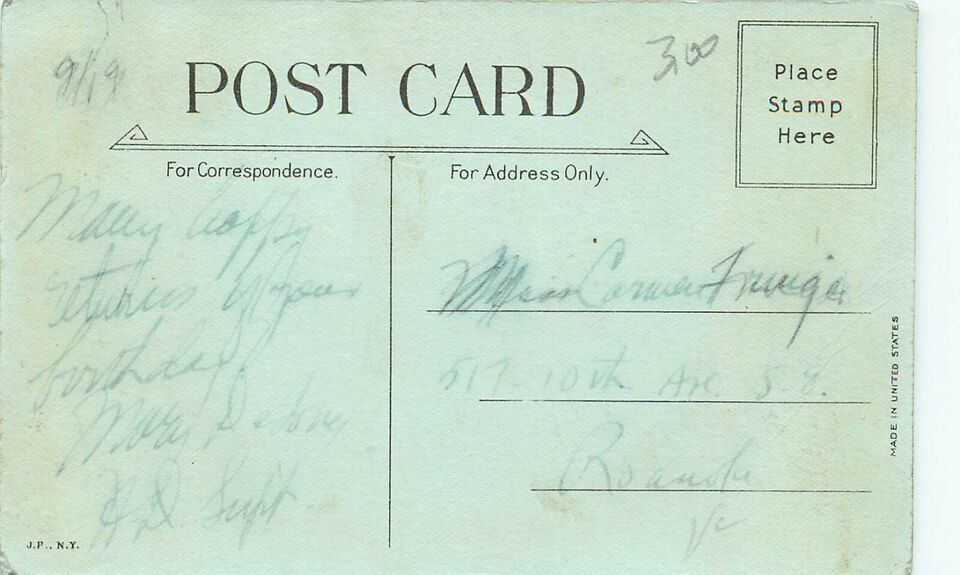 9/19
3,00
POST CARD
Place
Stamp
Here
For Correspondence.
For Address Only.
Many happy
returns of your
birthday.
Mrs.
H.D. Supt.
Miss
517-10th Ave S.E.
Roanoke
Va
MADE IN UNITED STATES
J.P., N.Y.